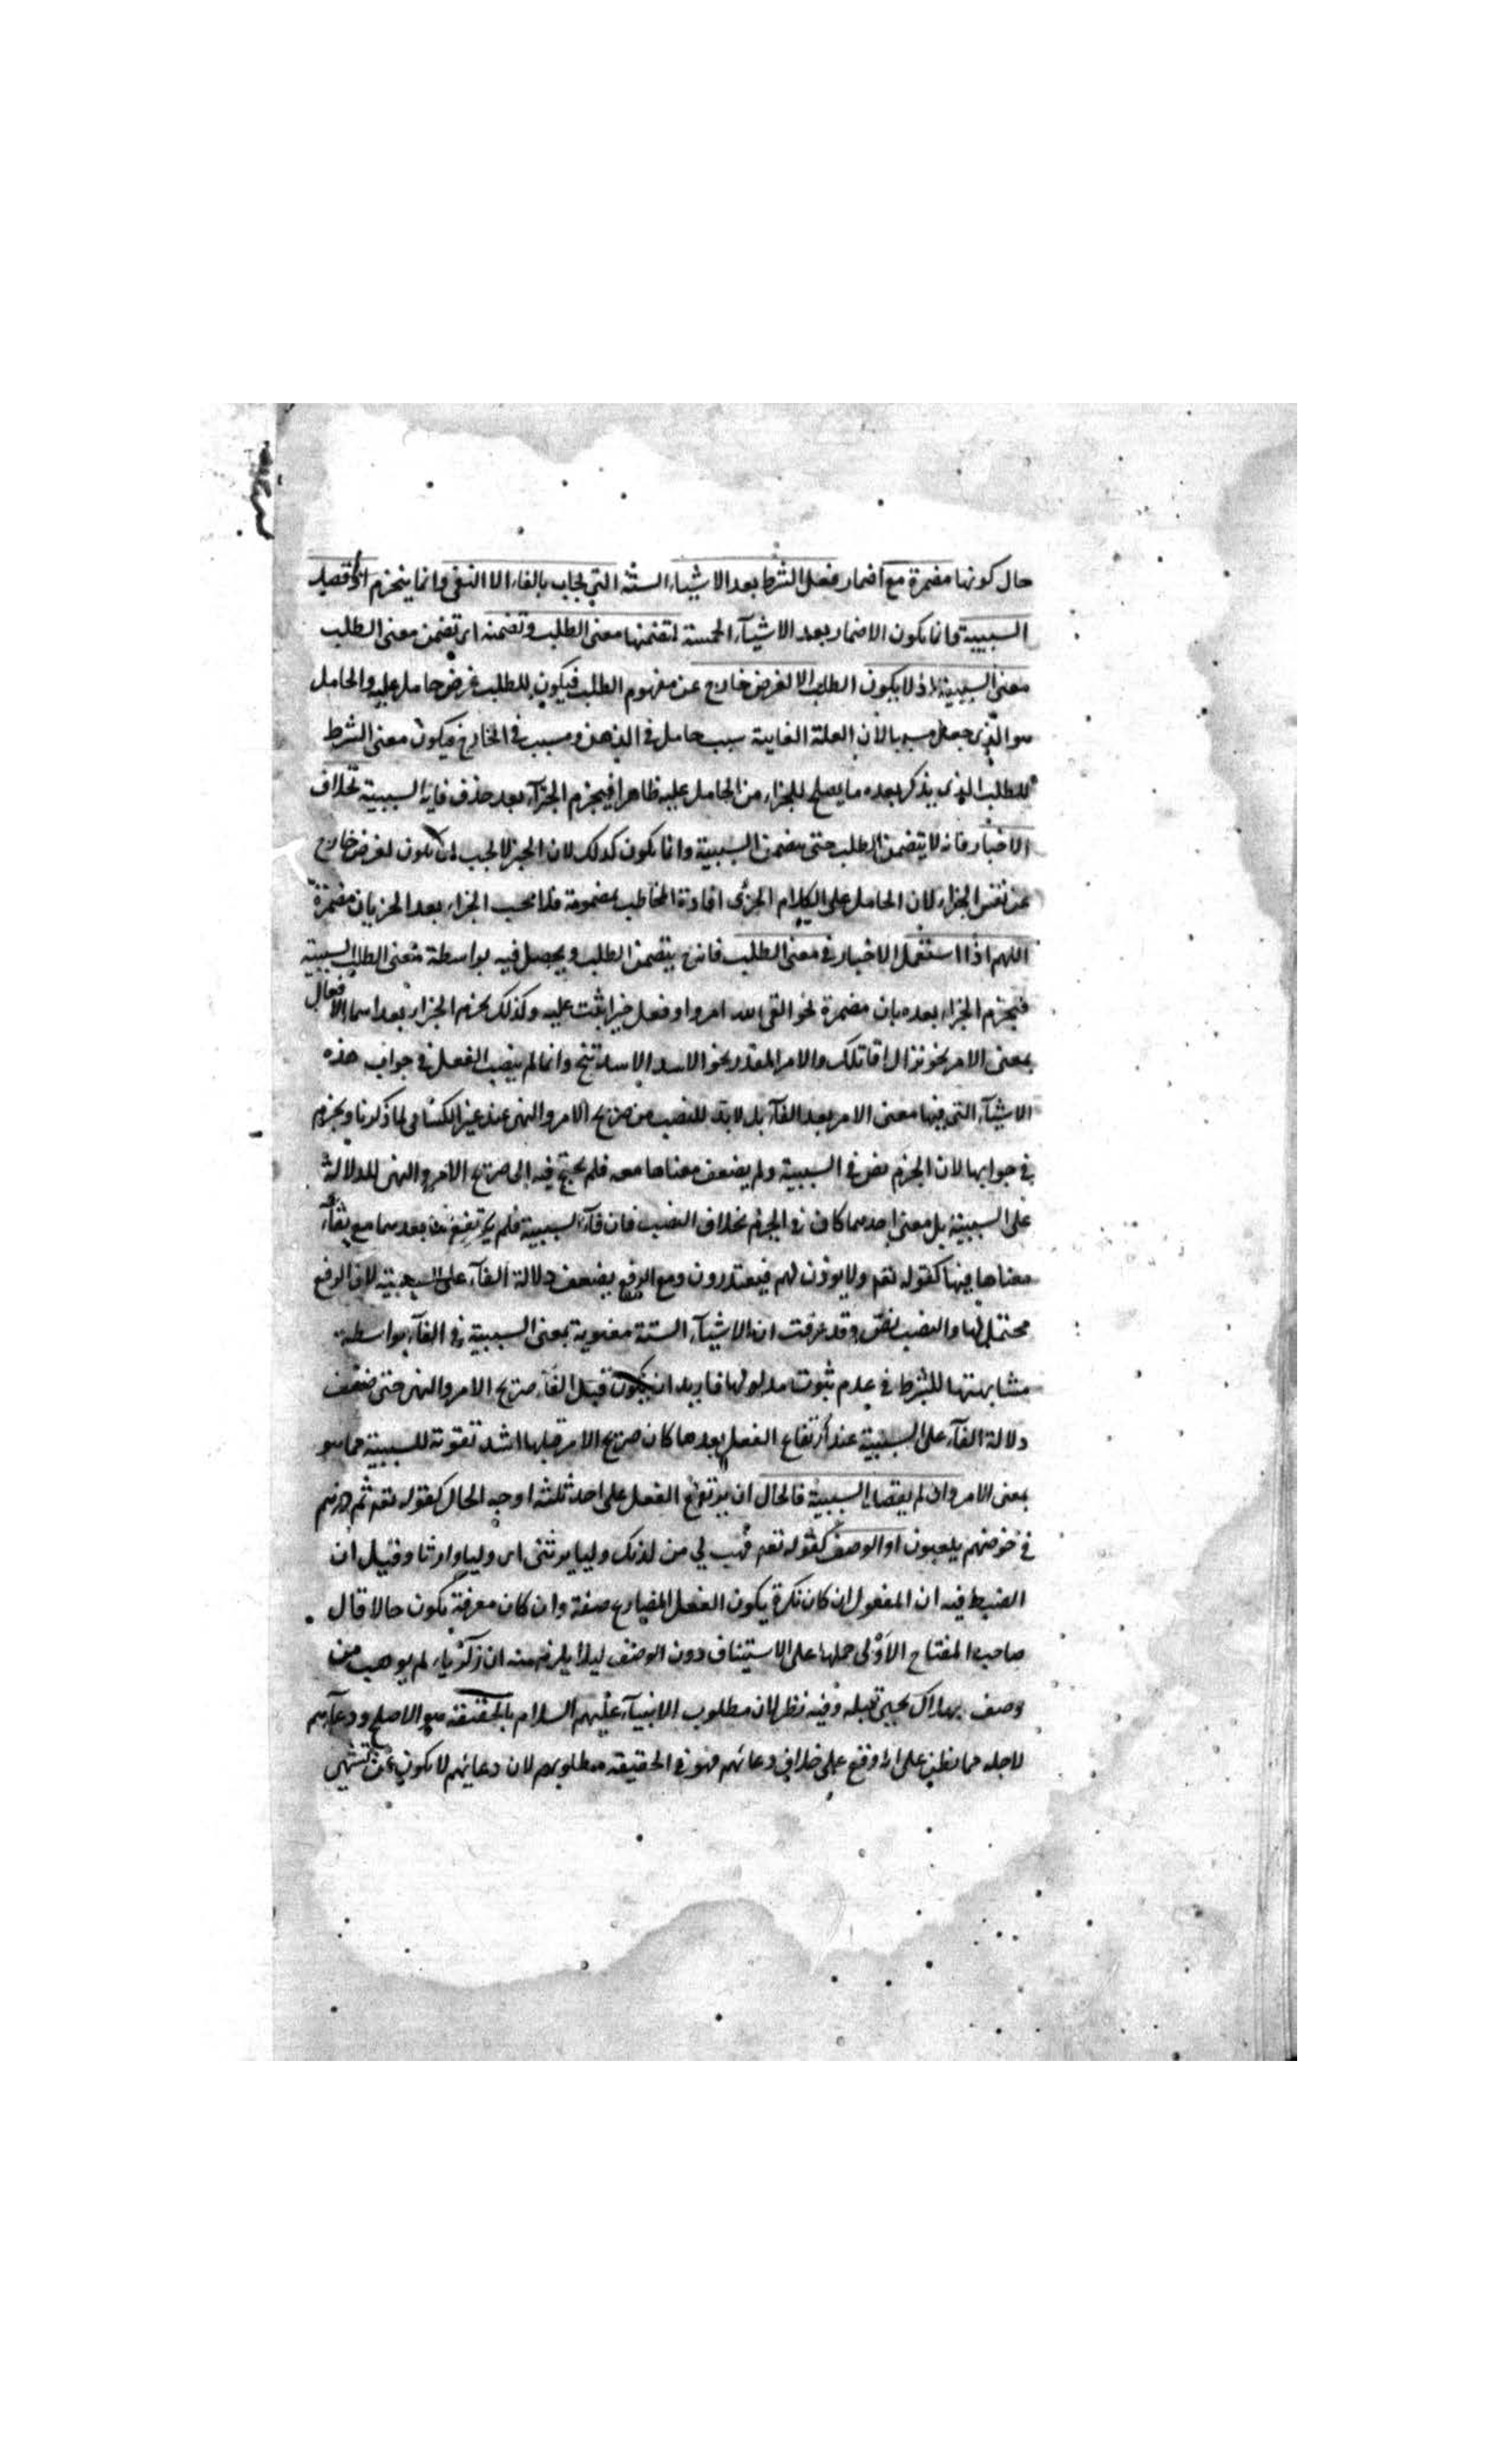 حال كونها مضمرة مع اضمار فعل الشرط بعد الاشياء الستة التي تجاب بالفاء الا النفي وانما ينجزم اذا قصد
السببية وانما يكون الاضمار بعد الاشيآء الخمسة لتضمنها معنى الطلب وتضمنه اى تضمن معنى الطلب
معنى السببية اذ لا يكون الطلب الا لغرض خارج عن مفهوم الطلب فيكون للطلب غرض حامل عليه والحامل
هو الذى جعل سببا لان العلة الغاية سبب حامل فى الذهن ومسبب فى الخارج فيكون معنى الشرط
للطلب الذى يذكر بعده ما يصلح للجزاء من الحامل عليه ظاهرا فيجزم الجزآء بعد حذف فاء السببية بخلاف
الاخبار فانه لا يتضمن الطلب حتى يتضمن السببية وانما يكون كذلك لان الخبر لا يجب ان يكون لغرض خارج
عن نفس الجزاء لان الحامل على الكلام الخبرى افادة المخاطب بمضمونه فلا يجب الجزاء بعد الخبر بان مضمرة
اللهم اذا استعمل الاخبار فى معنى الطلب فانه ح يتضمن الطلب ويحصل فيه بواسطة معنى الطلب السببية
فيجزم الجزاء بعده بان مضمرة نحو اتقى الله امرؤ وفعل خيرا يثب عليه وكذلك يجزم الجزاء بعد اسماء الافعال
بمعنى الامر نحو نزال اقاتلك والامر المقدر نحو الاسد الاسد تنج وانما لم ينصب الفعل فى جواب هذه
الاشيآء التى فيها معنى الامر بعد الفآء بل لا بد للنصب من صريح الامر والنهى عند غير الكسائى لما ذكرنا ويجزم
فى جوابها لان الجزم نص فى السببية ولم يضعف معناها معه فلم يحتج فيه الى صريح الامر والنهى للدلالة
على السببية بل معنى احدهما كاف فى الجزم بخلاف النصب فان فآء السببية فلم يرتفع بعدها مع بقآء
معناها فيها كقوله تعه ولا يؤذن لهم فيعتذرون ومع الرفع يضعف دلالة الفآء على السببية لان الرفع
محتمل لها والنصب نص وقد عرفت ان الاشيآء الستة مقوية بمعنى السببية فى الفآء بواسطة
مشابهتها للشرط فى عدم ثبوت مدلولها فاريد ان يكون قبل الفآء صريح الامر والنهى حتى ضعف
دلالة الفآء على السببية عند ارتفاع الفعل بعدها كان صريح الامر قبلها اشد تقوية للسببية مما هو
بمعنى الامر وان لم يقصد السببية فالحال ان يرتفع الفعل على احد ثلثة اوجه الحال كقوله تعه ثم ذرهم
فى خوضهم يلعبون او الوصف كقوله تعه فهب لي من لدنك وليا يرثنى اى وليا وارثا وقيل ان
الضبط فيه ان المفعول ان كان نكرة يكون الفعل المضارع صفة وان كان معرفة يكون حالا قال
صاحب المفتاح الاولى حملها على الاستيناف دون الوصف ليلا يلزم منه ان زكريا لم يوهب من
وصف بهلاك يحيى قبله وفيه نظر لان مطلوب الانبيآء عليهم السلام بالحقيقة هو الاصلح ودعآءهم
لاجله فما يظن على انه وقع على خلاف دعائهم فهو فى الحقيقة مطلوبهم لان دعائهم لا يكون عن تشهى